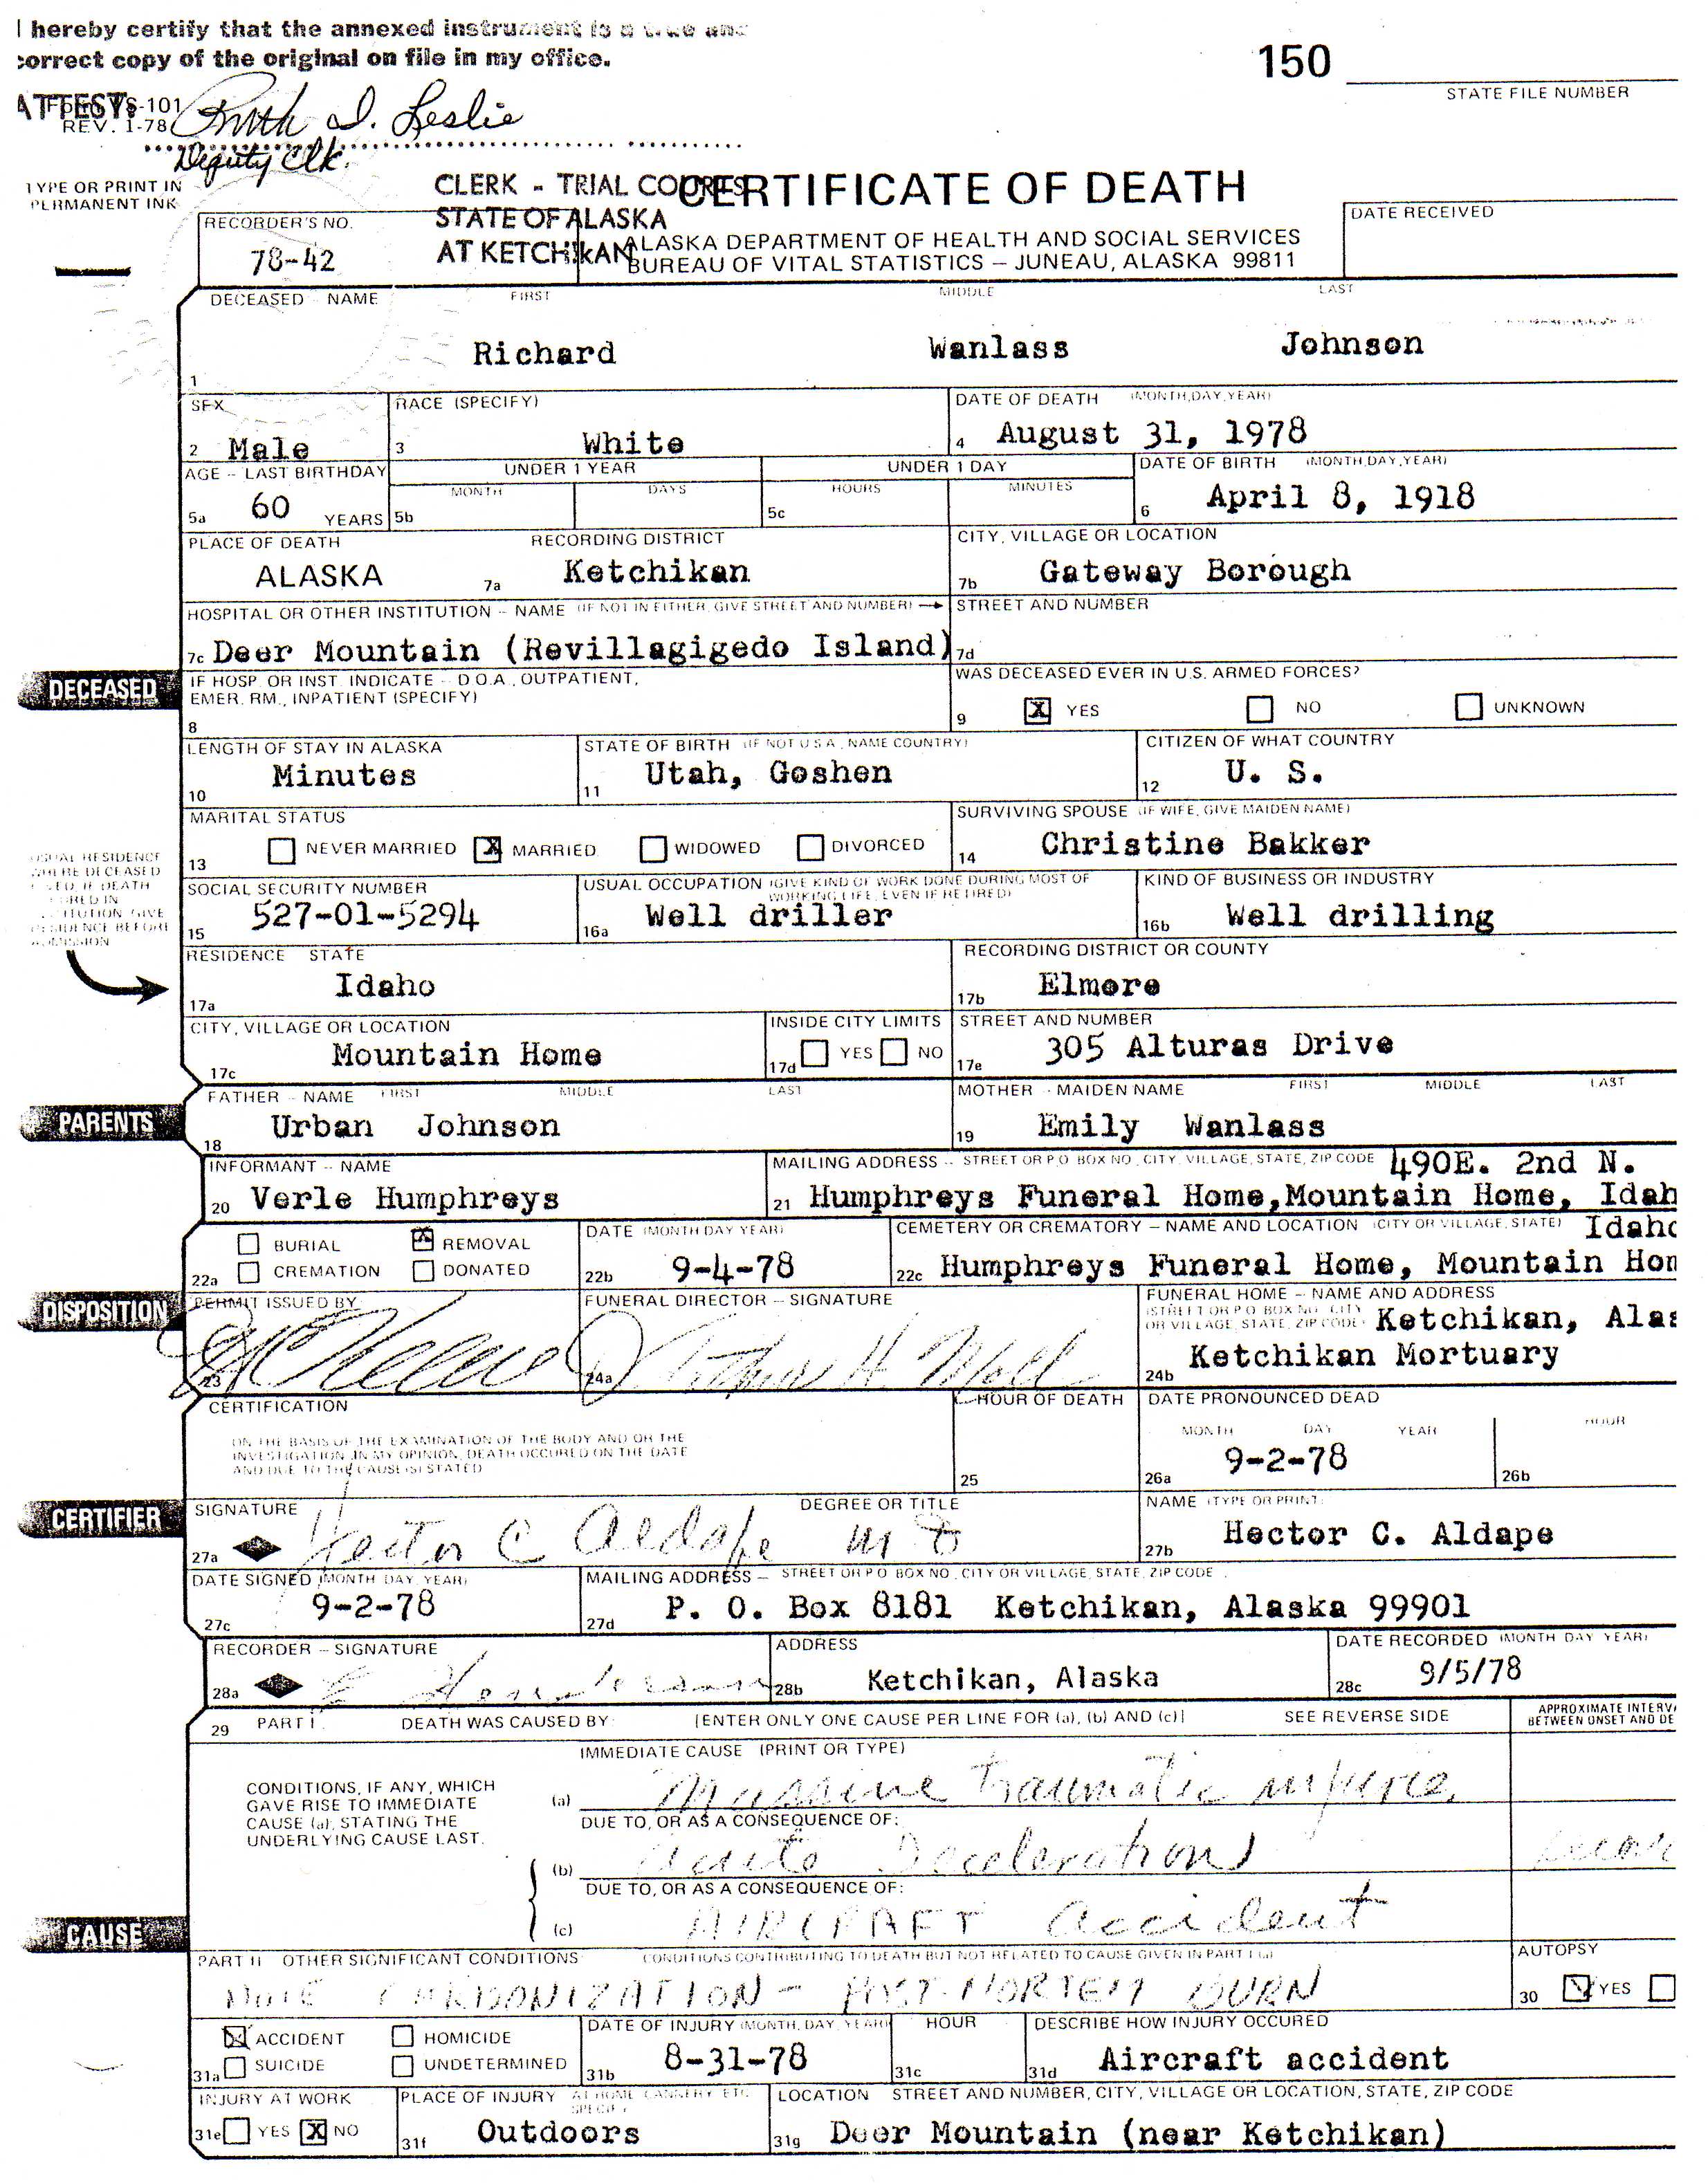 I hereby certify that the annexed instrument is a true and
correct copy of the original on file in my office.
150
STATE FILE NUMBER
ATTEST:
Form VS-101
REV. 1-78
Ruth D. Leslie
Deputy Clk.
TYPE OR PRINT IN
PERMANENT INK
CLERK - TRIAL COURTS
STATE OF ALASKA
AT KETCHIKAN
CERTIFICATE OF DEATH
ALASKA DEPARTMENT OF HEALTH AND SOCIAL SERVICES
BUREAU OF VITAL STATISTICS — JUNEAU, ALASKA 99811
RECORDER'S NO.
78-42
DATE RECEIVED
DECEASED - NAME FIRST MIDDLE LAST
1 Richard Wanlass Johnson
SEX RACE (SPECIFY) DATE OF DEATH (MONTH, DAY, YEAR)
2 Male 3 White 4 August 31, 1978
AGE - LAST BIRTHDAY UNDER 1 YEAR UNDER 1 DAY DATE OF BIRTH (MONTH, DAY, YEAR)
MONTH DAYS HOURS MINUTES
5a 60 YEARS 5b 5c 6 April 8, 1918
PLACE OF DEATH RECORDING DISTRICT CITY, VILLAGE OR LOCATION
ALASKA 7a Ketchikan 7b Gateway Borough
HOSPITAL OR OTHER INSTITUTION - NAME (IF NOT IN EITHER, GIVE STREET AND NUMBER) → STREET AND NUMBER
7c Deer Mountain (Revillagigedo Island) 7d
DECEASED
IF HOSP. OR INST. INDICATE - D.O.A., OUTPATIENT,
EMER. RM., INPATIENT (SPECIFY)
8
WAS DECEASED EVER IN U.S. ARMED FORCES?
9 X YES NO UNKNOWN
LENGTH OF STAY IN ALASKA STATE OF BIRTH (IF NOT U.S.A., NAME COUNTRY) CITIZEN OF WHAT COUNTRY
10 Minutes 11 Utah, Goshen 12 U. S.
MARITAL STATUS SURVIVING SPOUSE (IF WIFE, GIVE MAIDEN NAME)
13 NEVER MARRIED X MARRIED WIDOWED DIVORCED 14 Christine Bakker
USUAL RESIDENCE
WHERE DECEASED
LIVED. IF DEATH
OCCURED IN
INSTITUTION GIVE
RESIDENCE BEFORE
ADMISSION
SOCIAL SECURITY NUMBER USUAL OCCUPATION (GIVE KIND OF WORK DONE DURING MOST OF WORKING LIFE, EVEN IF RETIRED) KIND OF BUSINESS OR INDUSTRY
15 527-01-5294 16a Well driller 16b Well drilling
RESIDENCE STATE RECORDING DISTRICT OR COUNTY
17a Idaho 17b Elmore
CITY, VILLAGE OR LOCATION INSIDE CITY LIMITS STREET AND NUMBER
17c Mountain Home 17d YES NO 17e 305 Alturas Drive
PARENTS
FATHER - NAME FIRST MIDDLE LAST MOTHER - MAIDEN NAME FIRST MIDDLE LAST
18 Urban Johnson 19 Emily Wanlass
INFORMANT - NAME MAILING ADDRESS - STREET OR P.O. BOX NO., CITY, VILLAGE, STATE, ZIP CODE 490E. 2nd N.
20 Verle Humphreys 21 Humphreys Funeral Home, Mountain Home, Idah
BURIAL X REMOVAL DATE (MONTH DAY YEAR) CEMETERY OR CREMATORY - NAME AND LOCATION (CITY OR VILLAGE, STATE) Idaho
22a CREMATION DONATED 22b 9-4-78 22c Humphreys Funeral Home, Mountain Hom
DISPOSITION
PERMIT ISSUED BY FUNERAL DIRECTOR - SIGNATURE FUNERAL HOME - NAME AND ADDRESS
(STREET OR P.O. BOX NO., CITY
OR VILLAGE, STATE, ZIP CODE) Ketchikan, Alas
23 24a 24b Ketchikan Mortuary
CERTIFICATION HOUR OF DEATH DATE PRONOUNCED DEAD
ON THE BASIS OF THE EXAMINATION OF THE BODY AND OR THE
INVESTIGATION, IN MY OPINION, DEATH OCCURED ON THE DATE
AND DUE TO THE CAUSE(S) STATED
MONTH DAY YEAR HOUR
25 26a 9-2-78 26b
CERTIFIER
SIGNATURE DEGREE OR TITLE NAME (TYPE OR PRINT)
27a Hector C Aldape MD 27b Hector C. Aldape
DATE SIGNED (MONTH DAY, YEAR) MAILING ADDRESS - STREET OR P.O. BOX NO., CITY OR VILLAGE, STATE, ZIP CODE
27c 9-2-78 27d P. O. Box 8181 Ketchikan, Alaska 99901
RECORDER - SIGNATURE ADDRESS DATE RECORDED (MONTH DAY YEAR)
28a Henderson 28b Ketchikan, Alaska 28c 9/5/78
29 PART I. DEATH WAS CAUSED BY: [ENTER ONLY ONE CAUSE PER LINE FOR (a), (b) AND (c)] SEE REVERSE SIDE APPROXIMATE INTERVA
BETWEEN ONSET AND DE
IMMEDIATE CAUSE (PRINT OR TYPE)
CONDITIONS, IF ANY, WHICH
GAVE RISE TO IMMEDIATE
CAUSE (a), STATING THE
UNDERLYING CAUSE LAST.
(a) Massive traumatic injurie
DUE TO, OR AS A CONSEQUENCE OF:
(b) acute Deceleration
DUE TO, OR AS A CONSEQUENCE OF:
(c) AIRCRAFT accident
CAUSE
PART II OTHER SIGNIFICANT CONDITIONS CONDITIONS CONTRIBUTING TO DEATH BUT NOT RELATED TO CAUSE GIVEN IN PART I (a) AUTOPSY
CARBONIZATION - POST-MORTEM BURN 30 YES
X ACCIDENT HOMICIDE DATE OF INJURY (MONTH, DAY, YEAR) HOUR DESCRIBE HOW INJURY OCCURED
31a SUICIDE UNDETERMINED 31b 8-31-78 31c 31d Aircraft accident
INJURY AT WORK PLACE OF INJURY AT HOME, CANNERY, ETC. SPECIFY LOCATION STREET AND NUMBER, CITY, VILLAGE OR LOCATION, STATE, ZIP CODE
31e YES X NO 31f Outdoors 31g Deer Mountain (near Ketchikan)